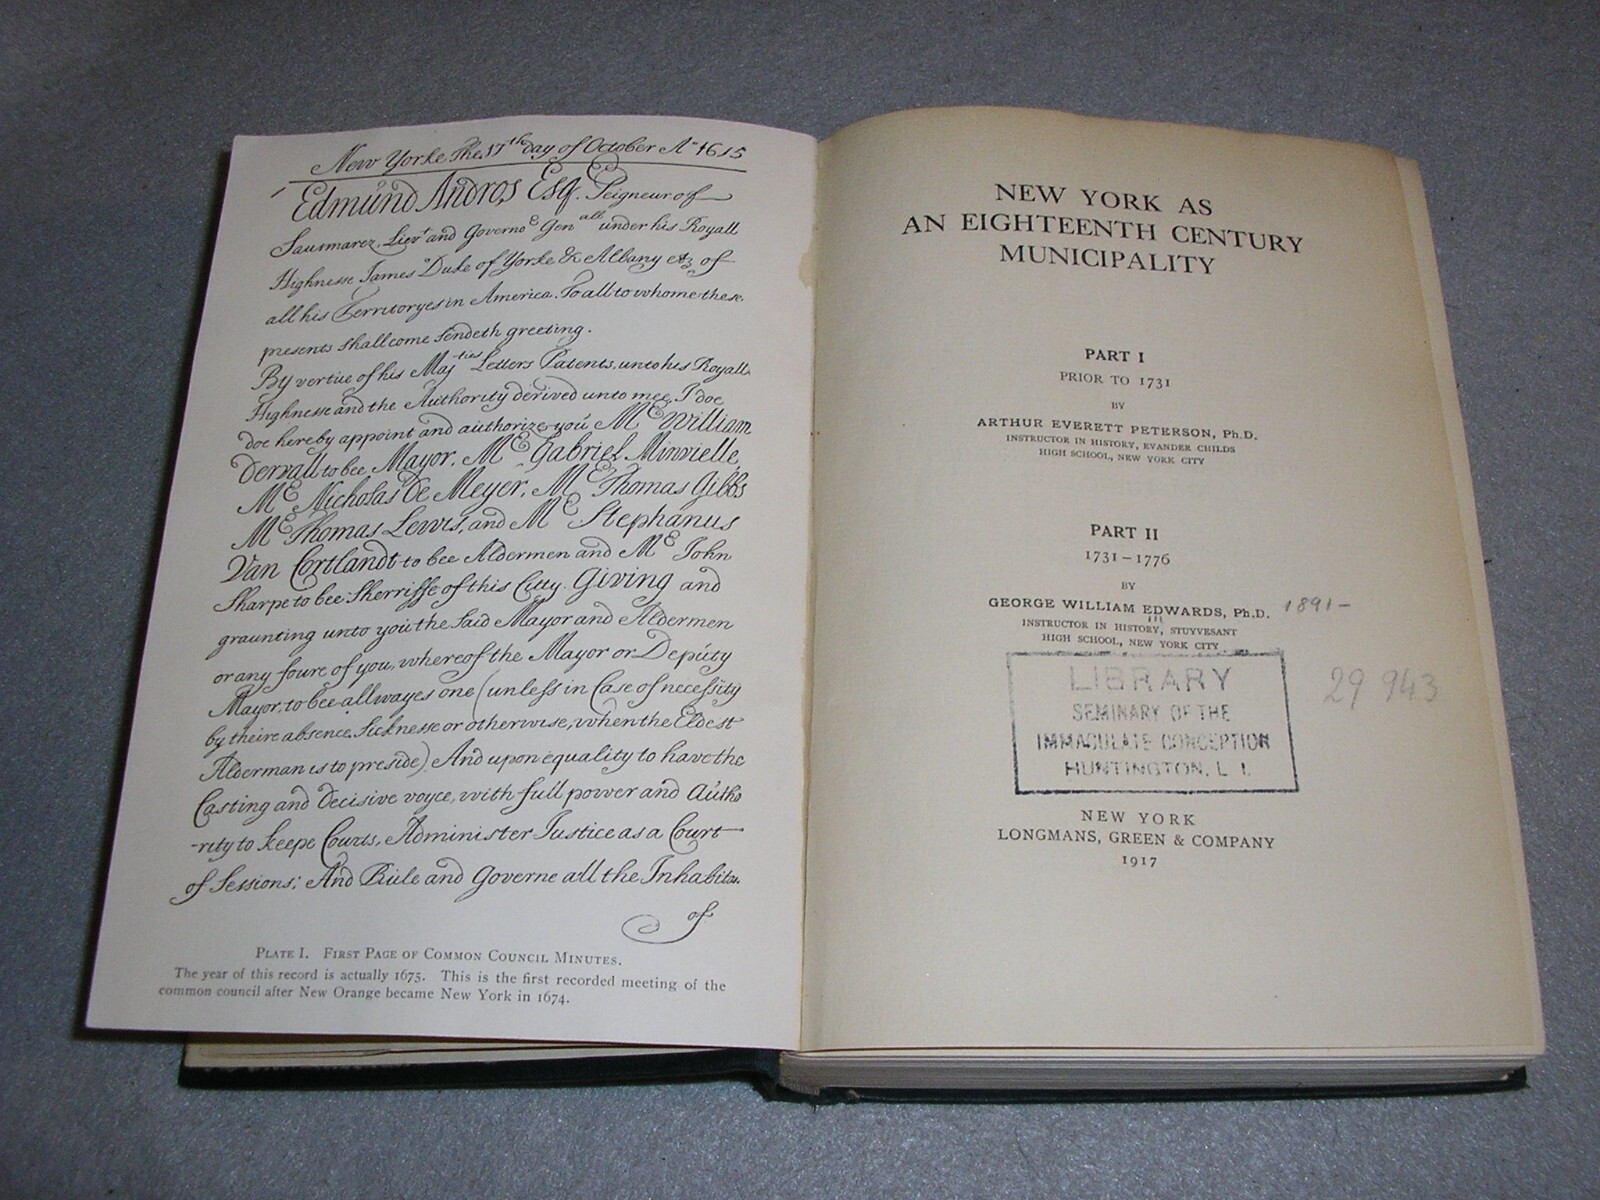 New Yorke The 17th day of October Ao 1615
Edmund Andros, Esqr. Seigneur of
Sausmarez, Lievt and Governor Genall under his Royall
Highnesse James Duke of Yorke & Albany etz of
all his Territoryes in America. To all to whome these
presents shall come sendeth greeting.
By vertue of his Majties Letters Patents, unto his Royall
Highnesse and the Authority derived unto mee, I doe
doe hereby appoint and authorize you Mr William
Dervall to bee Mayor, Mr Gabriel Minvielle,
Mr Nicholas De Meyer, Mr Thomas Gibbs
Mr Thomas Lewis, and Mr Stephanus
Van Cortlandt to bee Aldermen and Mr John
Sharpe to bee Sherriffe of this Citty. Giving and
graunting unto you the said Mayor and Aldermen
or any foure of you, whereof the Mayor or Deputy
Mayor, to bee allwayes one (unless in Case of necessity
by theire absence, Sicknesse or otherwise, when the Eldest
Alderman is to preside) And upon equality to have the
Casting and Decisive voyce, with full power and Autho
-rity to keepe Courts, Administer Justice as a Court
of Sessions; And Rule and Governe all the Inhabitts.
of
PLATE I. FIRST PAGE OF COMMON COUNCIL MINUTES.
The year of this record is actually 1675. This is the first recorded meeting of the
common council after New Orange became New York in 1674.
NEW YORK AS
AN EIGHTEENTH CENTURY
MUNICIPALITY
PART I
PRIOR TO 1731
BY
ARTHUR EVERETT PETERSON, Ph.D.
INSTRUCTOR IN HISTORY, EVANDER CHILDS
HIGH SCHOOL, NEW YORK CITY
PART II
1731–1776
BY
GEORGE WILLIAM EDWARDS, Ph.D. 1891-
INSTRUCTOR IN HISTORY, STUYVESANT
HIGH SCHOOL, NEW YORK CITY
LIBRARY
SEMINARY OF THE
IMMACULATE CONCEPTION
HUNTINGTON, L. I.
29 943
NEW YORK
LONGMANS, GREEN & COMPANY
1917